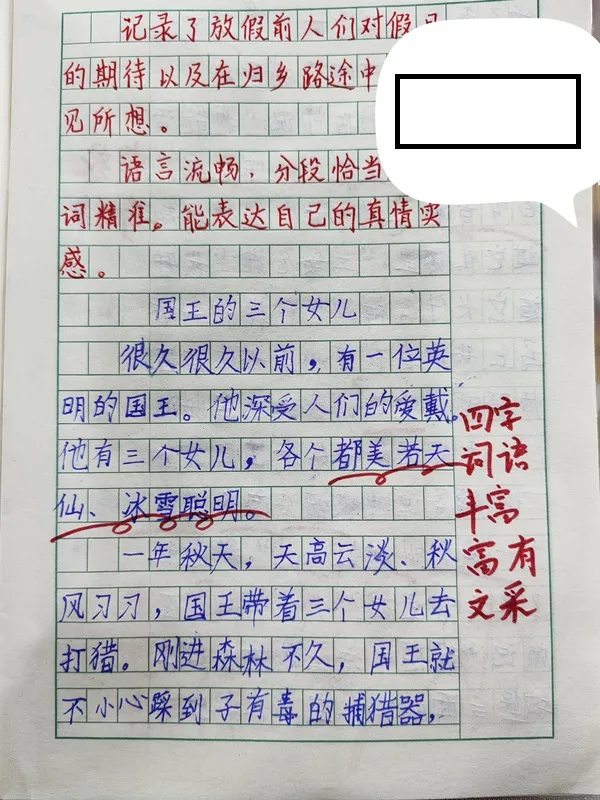 记录了放假前人们对假
的期待以及在归乡路途中
见所想。
语言流畅，分段恰当
词精准。能表达自己的真情实
感。
国王的三个女儿
很久很久以前，有一位英
明的国王。他深受人们的爱戴。
他有三个女儿，各个都美若天
仙、冰雪聪明。
一年秋天，天高云淡、秋
风习习，国王带着三个女儿去
打猎。刚进森林不久，国王就
不小心踩到子有毒的捕猎器，
四字
词语
丰富
富有
文采